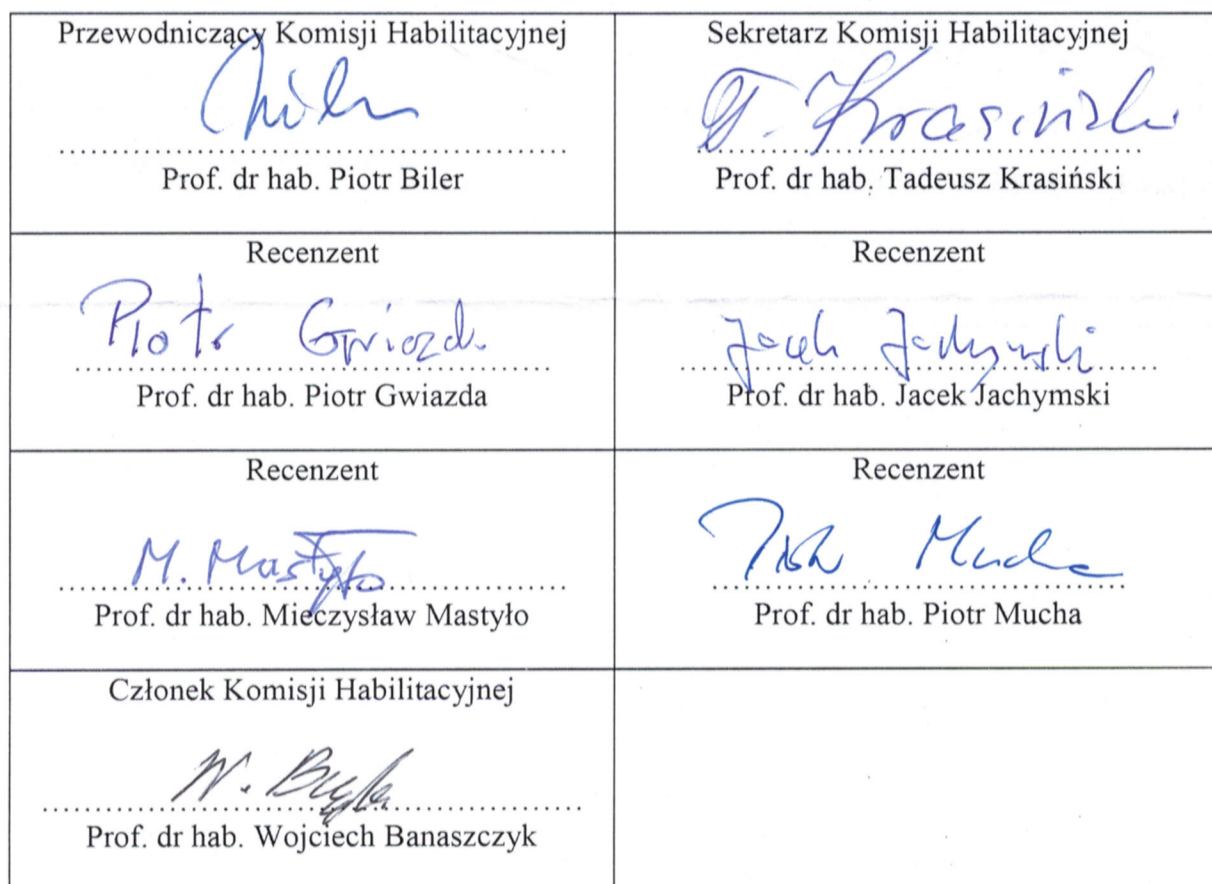 Przewodniczący Komisji Habilitacyjnej
Biler
Prof. dr hab. Piotr Biler
Sekretarz Komisji Habilitacyjnej
T. Krasiński
Prof. dr hab. Tadeusz Krasiński
Recenzent
Piotr Gwiazda
Prof. dr hab. Piotr Gwiazda
Recenzent
Jacek Jachymski
Prof. dr hab. Jacek Jachymski
Recenzent
M. Mastyło
Prof. dr hab. Mieczysław Mastyło
Recenzent
Piotr Mucha
Prof. dr hab. Piotr Mucha
Członek Komisji Habilitacyjnej
W.
Prof. dr hab. Wojciech Banaszczyk